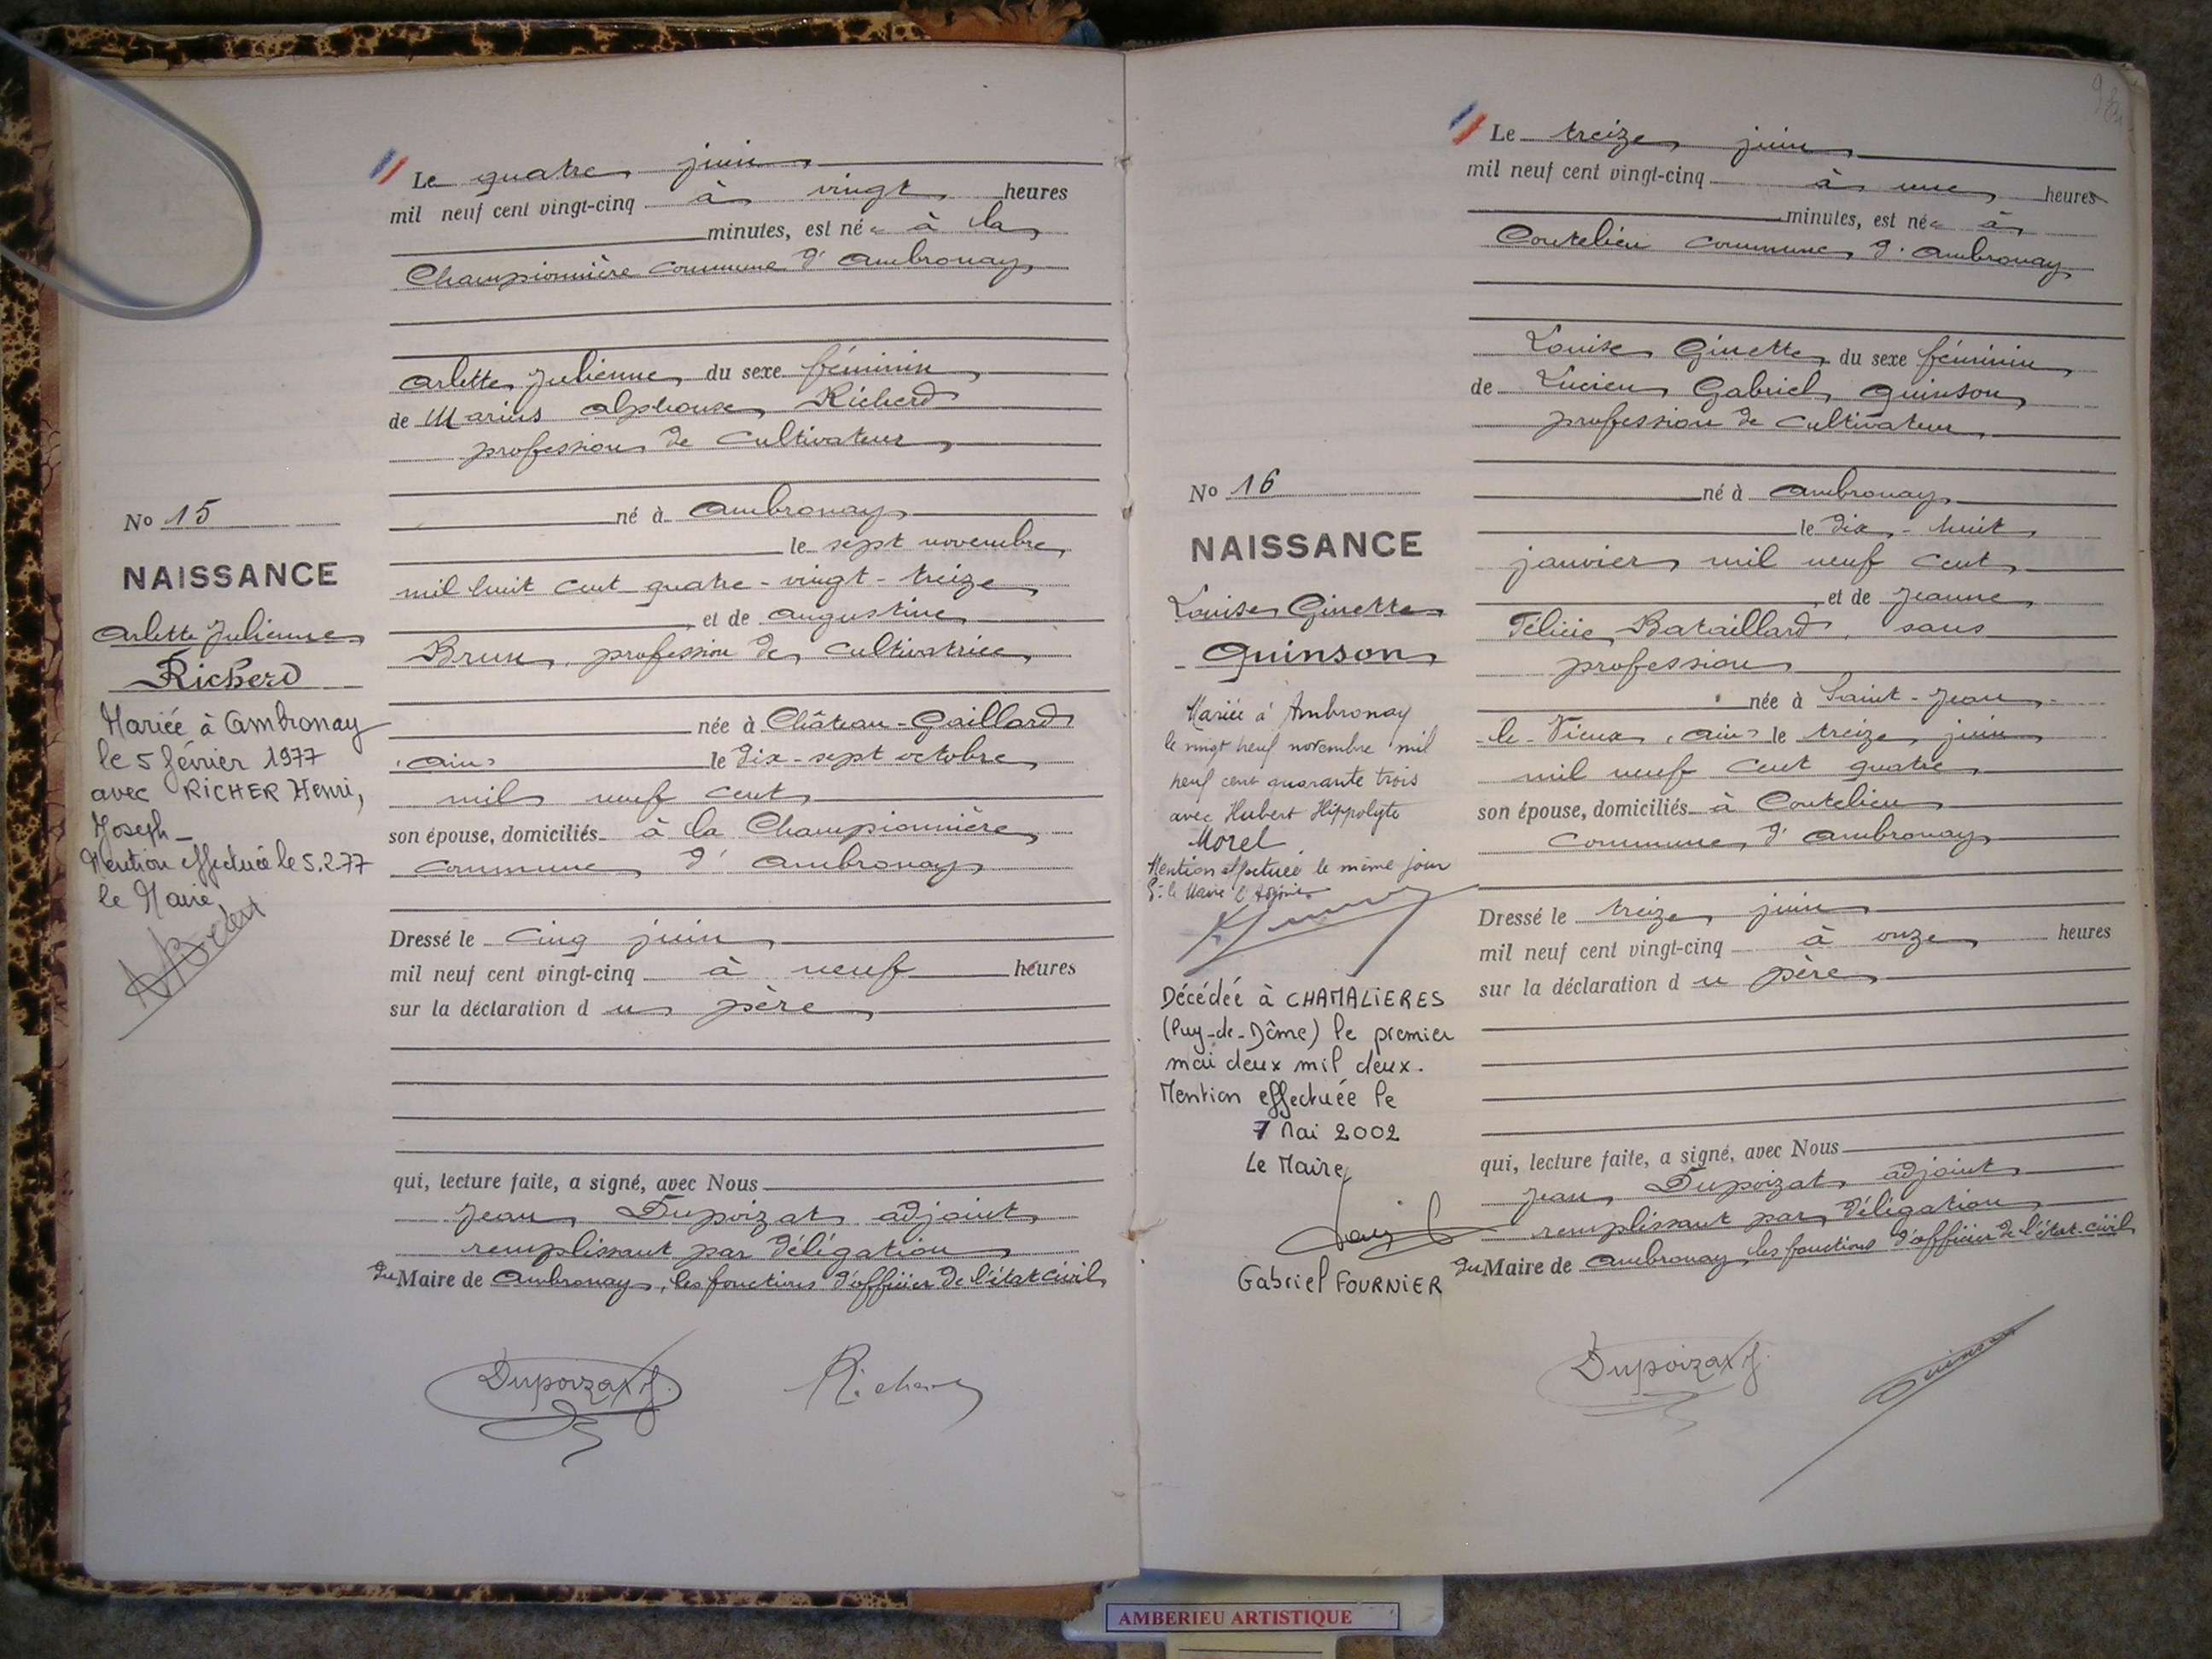 Le quatre juin
mil neuf cent vingt-cinq à vingt heures
minutes, est née à la
Championnière commune d'Ambronay
Arlette Julienne du sexe féminin
de Marius Alphonse Richerd
profession de cultivateur
né à Ambronay
le sept novembre
mil huit cent quatre-vingt-treize
et de Augustine
Brun, profession de cultivatrice
née à Château-Gaillard
(Ain) le dix-sept octobre
mil neuf cent
son épouse, domiciliés à la Championnière
commune d'Ambronay
Dressé le cinq juin
mil neuf cent vingt-cinq à neuf heures
sur la déclaration du père
qui, lecture faite, a signé, avec Nous
Jean Dupoizat adjoint
remplissant par délégation
du Maire de Ambronay, les fonctions d'officier de l'état civil
Dupoizat J.
Richerd
No 15
NAISSANCE
Arlette Julienne
Richerd
Mariée à Ambronay
le 5 février 1977
avec RICHER Henri,
Joseph_
Mention effectuée le 5.2.77
le Maire
Le treize juin
mil neuf cent vingt-cinq à une heures
minutes, est née à
Coutelieu commune d'Ambronay
Louise Ginette du sexe féminin
de Lucien Gabriel Quinson
profession de cultivateur
né à Ambronay
le dix-huit
janvier mil neuf cent
et de Jeanne
Félicie Bataillard, sans
profession
née à Saint-Jean-
le-Vieux (Ain) le treize juin
mil neuf cent quatre
son épouse, domiciliés à Coutelieu
commune d'Ambronay
Dressé le treize juin
mil neuf cent vingt-cinq à onze heures
sur la déclaration du père
qui, lecture faite, a signé, avec Nous
Jean Dupoizat adjoint
remplissant par délégation
du Maire de Ambronay, les fonctions d'officier de l'état-civil
Dupoizat J.
Quinson
No 16
NAISSANCE
Louise Ginette
Quinson
Mariée à Ambronay
le vingt neuf novembre mil
neuf cent quarante trois
avec Hubert Hippolyte
Morel
Mention effectuée le même jour
P. le Maire l'Adjoint
Décédée à CHAMALIERES
(Puy-de-Dôme) le premier
mai deux mil deux.
Mention effectuée le
7 Mai 2002
Le Maire,
Gabriel FOURNIER
AMBERIEU ARTISTIQUE